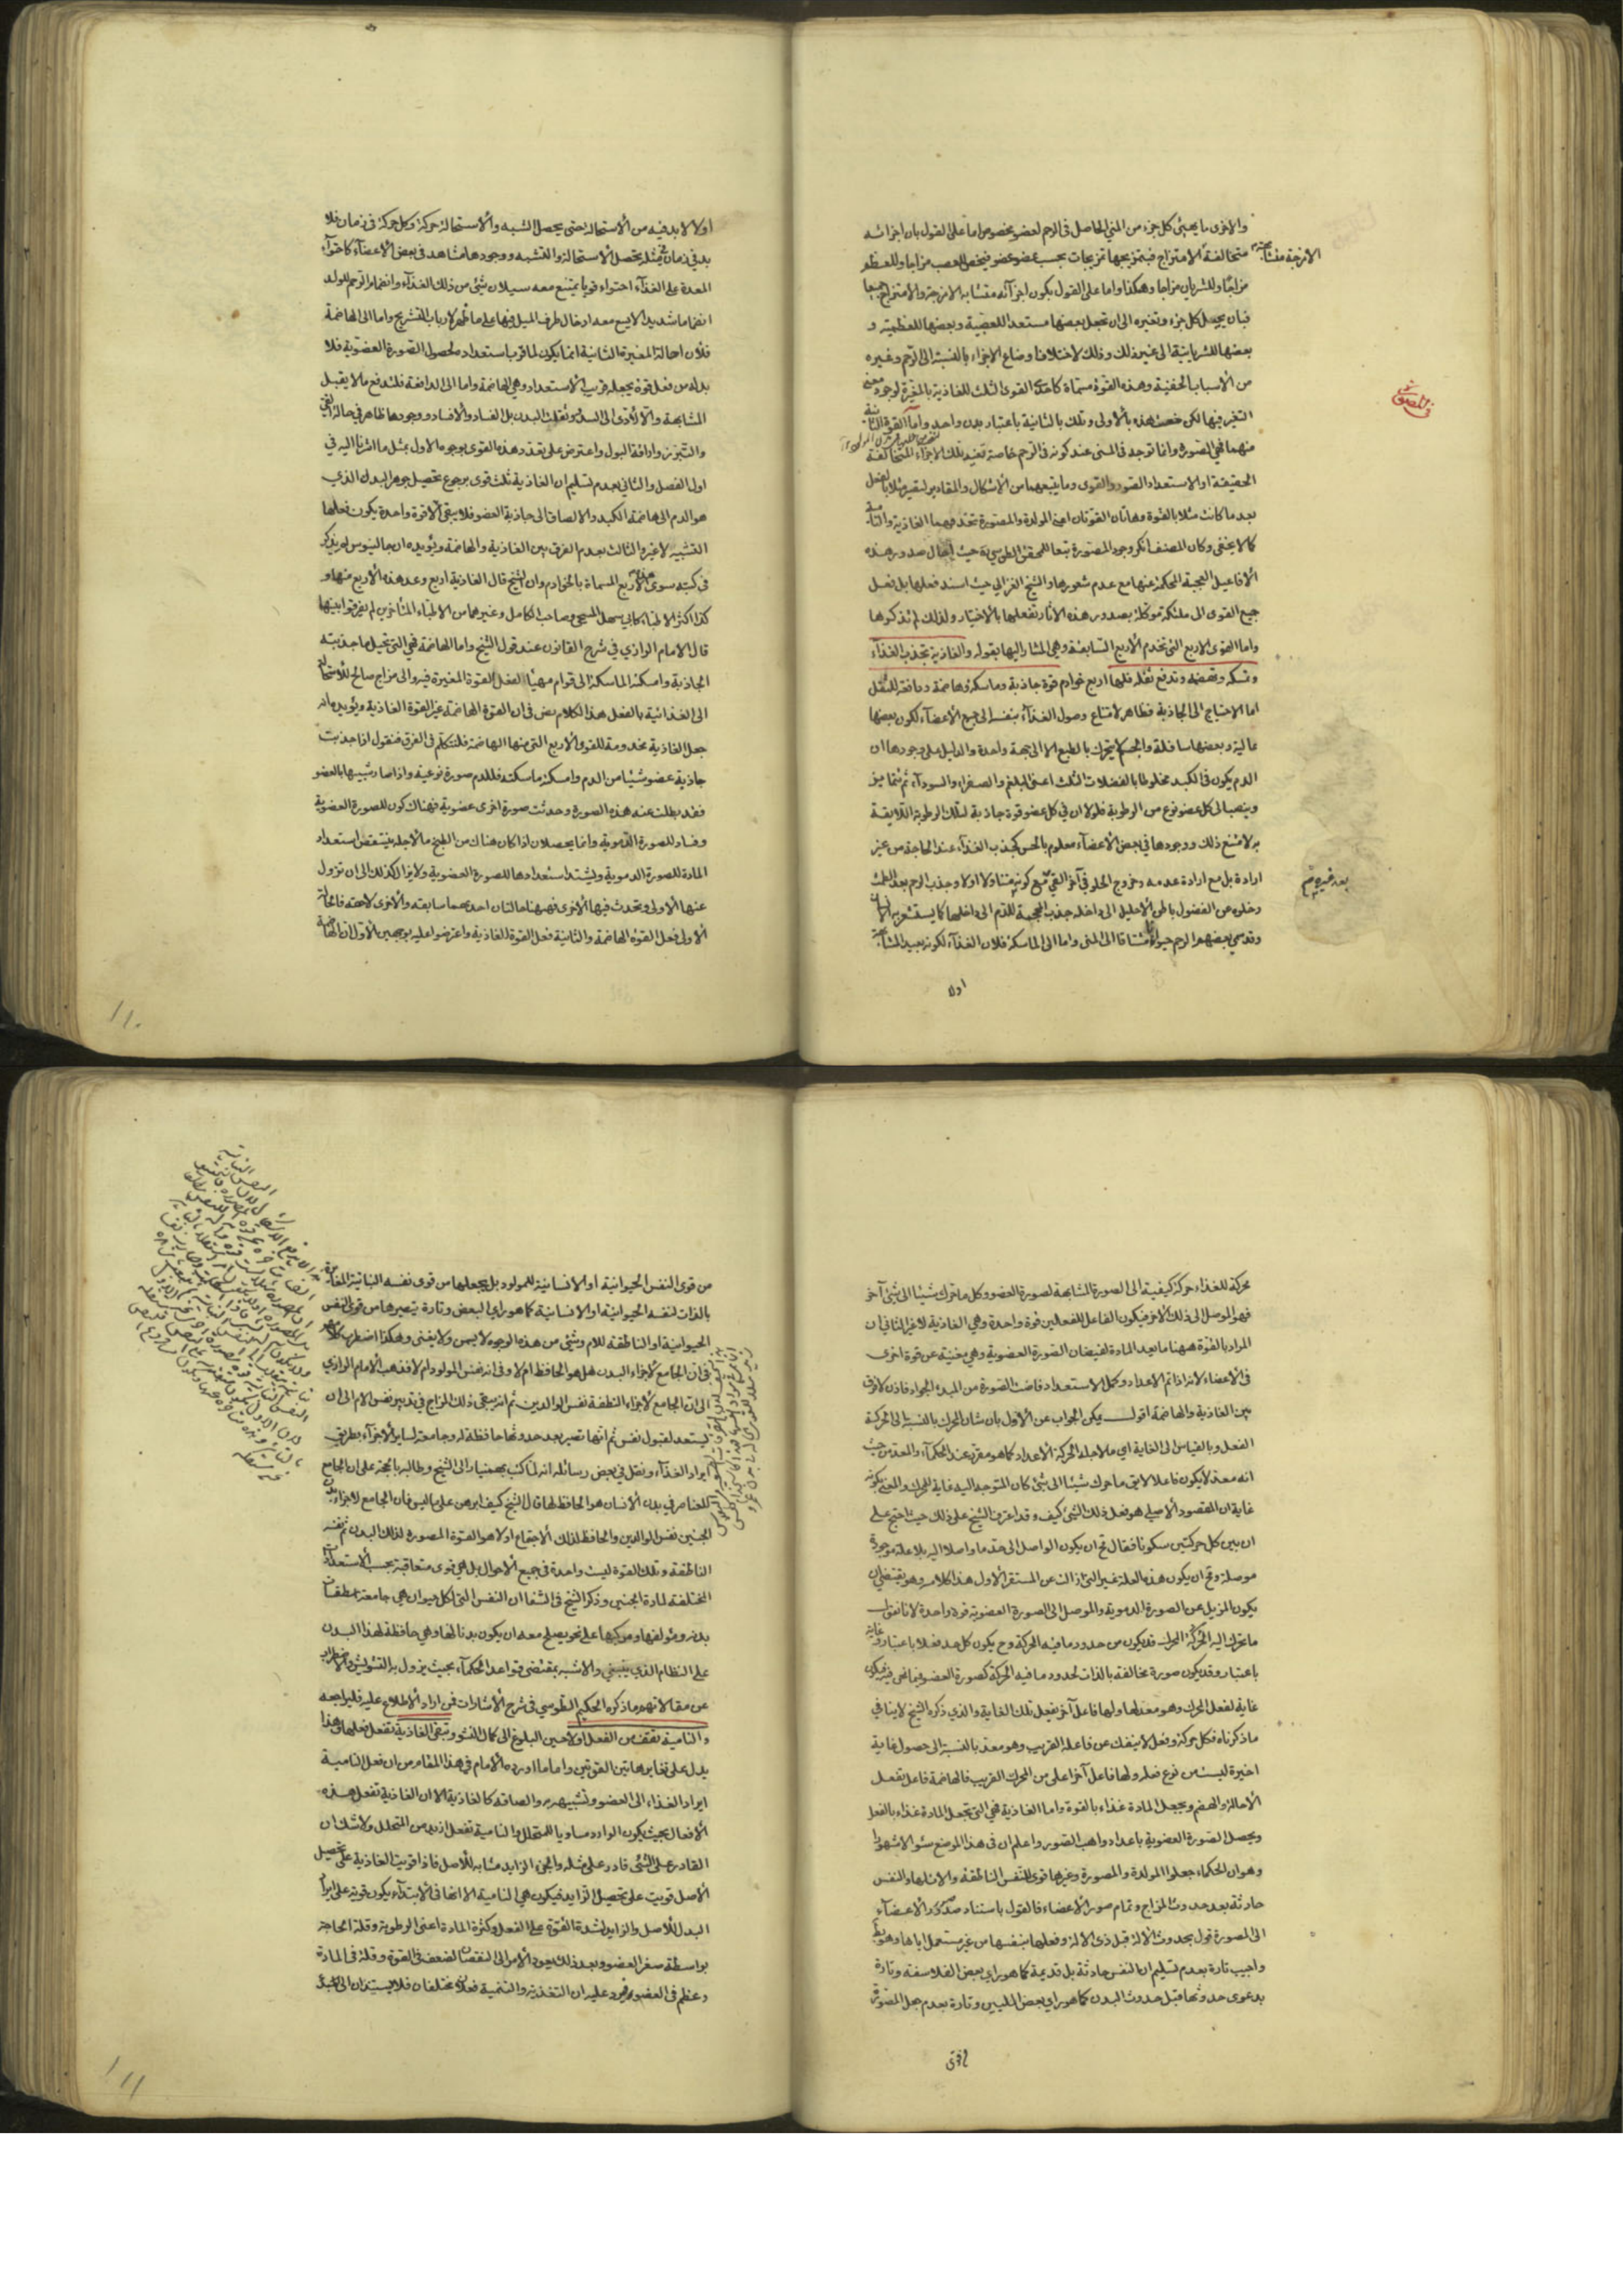 والاخرى ما يهيئ كل جزء من المني الحاصل في الرحم لعضو مخصوص اما على القول بان اجزائه
متخالفة الامتزاج فبتمزيجها تمزيجات بحسب عضو عضو فيخص للعصب مزاجا وللعظم
مزاجا وللشريان مزاجا وهكذا واما على القول بكون اجزائه متشابه الامزجة والامتزاج
فبان يحيل كل جزء وتغيره الى ان تجعل بعضها مستعد اللعصبية وبعضها للعظمية و
بعضها للشريانية الى غير ذلك وذلك لاختلاف اوضاع الاجزاء بالنسبة الى الرحم وغيره
من الاسباب الخفية وهذه القوة مسماة كاحدى القوى الثلث للغاذية بالمغيرة لوجود معنى
التغير فيها لكن خصت هذه بالاولى وتلك بالثانية باعتبار بدن واحد واما القوة الثانية
منهما فهي المصورة وانما توجد في المني عند كونه في الرحم خاصة تفيد تلك الاجزاء المتخالفة
الحقيقة او الاستعداد الصور والقوى وما يتبعهما من الاشكال والمقادير لتصير مثلا بالفعل
بعد ما كانت مثلا بالقوة وهاتان القوتان اعني المولدة والمصورة تخدمهما الغاذية والنامية
كما لا يخفى وكان المصنف انكر وجود المصورة تبعا للمحقق الطوسي حيث احال صدور هذه
الافاعيل العجيبة المحكمة عنها مع عدم شعورها والشيخ الغزالي حيث اسند فعلها بل فعل
جميع القوى الى ملئكة موكلة بصدور هذه الاثار تفعلها بالاختيار ولذلك لم تذكروها
واما القوى الاربع التي تخدم الاربع السابقة وهي المشار اليها بقوله والغاذية تجذب الغذاء
وتمسكه وتهضمه وتدفع ثفله فلها اربع خوادم قوة جاذبة وماسكة وهاضمة ودافعة للثفل
اما الاحتياج الى الجاذبة فظاهر لامتناع وصول الغذاء بنفسه الى جميع الاعضاء لكون بعضها
عالية وبعضها سافلة والجسم لا يتحرك بالطبع الا الى جهة واحدة والدليل على وجودها ان
الدم يكون في الكبد مخلوطا بالفضلات الثلث اعني البلغم والصفراء والسوداء ثم تتمايز
وينصب الى كل عضو نوع من الرطوبة فلولا ان في كل عضو قوة جاذبة لتلك الرطوبة اللايقة
به لامتنع ذلك ووجودها في بعض الاعضاء معلوم بالحس كجذب الغذاء عند الحاجة من غير
ارادة بل مع ارادة عدمه وخروج الحلو في آخر القئ مع كونه متناولا اولا وجذب الرحم بعد الطمث
وخلوه عن الفضول باطن الاحليل الى داخله جذب المحجمة للدم الى داخلها كما يستشعر به الانسان
وقد سمى بعضهم الرحم حيوانا مشتاقا الى المني واما الى الماسكة فلان الغذاء لكونه بعيد المشابهة
اولا
بعد غيره ثم
اولا لا بد فيه من الاستحالة حتى يحصل الشبه والاستحالة حركة وكل حركة في زمان فلا
بد في زمان بمثله يحصل الاستحالة والتشبه ووجودها مشاهد في بعض الاعضاء كاحتواء
المعدة على الغذاء احتواء قويا يمتنع معه سيلان شئ من ذلك الغذاء وانضمام الرحم للولد
انضماما شديدا لا يسع معه ادخال طرف الميل فيها على ما ظهر لارباب التشريح واما الى الهاضمة
فلان احالة المغيرة الثانية انما يكون لما قرب استعداده لحصول الصورة العضوية فلا
بد له من فعل قوة يجعله قريب الاستعداد وهي الهاضمة واما الى الدافعة فلتدفع ما لا يقبل
المشابهة والا لادى الى السدد وثقلت البدن بل الفساد والافساد ووجودها ظاهر في حالة القئ
والتبرز واراقة البول واعترض على تعدد هذه القوى بوجوه الاول بمثل ما اشرنا اليه في
اول الفصل والثاني بعدم تسليم ان الغاذية ثلث قوى برجوع تحصيل جوهر البدل الذي
هو الدم الى هاضمة الكبد والالصاق الى جاذبة العضو فلا يبقى الا قوة واحدة يكون فعلها
التشبيه لا غير والثالث بعدم الفرق بين الغاذية والهاضمة ويؤيده ان جالينوس لم يذكر
في كتبه سوى هذه الاربع المسماة بالخوادم وان الشيخ قال الغاذية اربع وعد هذه الاربع منها و
كذا اكثر الاطباء كابي سهل المسيحي وصاحب الكامل وغيرهما من الاطباء المتأخرين لم يفرقوا بينها
قال الامام الرازي في شرح القانون عند قول الشيخ واما الهاضمة فهي التي تحيل ما جذبته
الجاذبة وامسكته الماسكة الى قوام مهيأ لفعل القوة المغيرة فيه والى مزاج صالح للاستحالة
الى الغذائية بالفعل هذا الكلام نص في ان القوة الهاضمة غير القوة الغاذية ويؤيده انه
جعل الغاذية مخدومة للقوى الاربع التي منها الهاضمة فلنتكلم في الفرق فنقول اذا جذبت
جاذبة عضو شيئا من الدم وامسكته ماسكته فللدم صورة نوعية واذا صار شبيها بالعضو
فقد بطلت عنه هذه الصورة وحدثت صورة اخرى عضوية فهناك كون للصورة العضوية
وفساد للصورة الدموية وانما يحصلان اذا كان هناك من الطبخ ما لاجله ينتقص استعداد
المادة للصورة الدموية ويشتد استعدادها للصورة العضوية ولا يزال كذلك الى ان تزول
عنها الاولى وتحدث فيها الاخرى فههنا حالتان احديهما سابقة والاخرى لاحقة فالحالة
الاولى فعل القوة الهاضمة والثانية فعل القوة الغاذية واعترضوا عليه بوجهين الاول ان الهاضمة
محركة للغذاء حركة كيفية الى الصورة المشابهة لصورة العضو وكل ما حرك شيئا الى شئ آخر
فهو الموصل الى ذلك الآخر فيكون الفاعل للفعلين قوة واحدة وهي الغاذية لا غير الثاني ان
المراد بالقوة ههنا ما يعد المادة لفيضان الصورة العضوية وهي مغنية عن قوة اخرى
في الاعضاء لانه اذا تم الاعداد وكمل الاستعداد فاضت الصورة من المبدء الجواد فاذن لا فرق
بين الغاذية والهاضمة اقول يمكن الجواب عن الاول بان شان المحرك بالنسبة الى الحركة
الفعل وبالقياس الى الغاية اي ما لاجله الحركة الاعداد كما هو مقرر عند الحكماء والمعد من حيث
انه معد لا يكون فاعلا لا يق ما حرك شيئا الى شئ كان المتوجه اليه غاية للمحرك والمعني بكونه
غاية ان المقصود الاصلي هو فعل ذلك الشئ كيف وقد اعترف الشيخ على ذلك حيث احتج على
ان بين كل حركتين سكونا فقال مح ان يكون الواصل الى حد ما واصلا اليه بلا علة موجودة
موصلة ومح ان يكون هذه العلة غير التي ازالت عن المستقر الاول هذا كلامه وهو يقتضي ان
يكون المزيل عن الصورة الدموية والموصل الى الصورة العضوية قوة واحدة لانا نقول
ما تحرك اليه المتحرك قد يكون من حدود ما فيه الحركة وح يكون كل حد فعلا باعتبار وغاية
باعتبار وقد يكون صورة مخالفة بالذات لحدود ما فيه الحركة كصورة العضو فيما نحن فيه فيكون
غاية لفعل المحرك وهو معد لها ولها فاعل آخر يفعل تلك الغاية والذي ذكره الشيخ لا ينافي
ما ذكرناه فكل حركة وفعل لا ينفك عن فاعله القريب وهو معد بالنسبة الى حصول غاية
اخيرة ليست من نوع فعله ولها فاعل آخر اعلى من المحرك القريب فالهاضمة فاعل يفعل
الاحالة والهضم ويجعل المادة غذاء بالقوة واما الغاذية فهي التي تجعل المادة غذاء بالفعل
ويحصل الصورة العضوية باعداد واهب الصور واعلم ان في هذا الموضع سئوالا مشهورا
وهو ان الحكماء جعلوا المولدة والمصورة وغيرهما قوى للنفس الناطقة والات لها والنفس
حادثة بعد حدوث المزاج وتمام صور الاعضاء فالقول باستناد صور الاعضاء
الى المصورة قول بحدوث الالة قبل ذي الالة وفعلها بنفسها من غير مستعمل اياها وهو بط
واجيب تارة بعدم تسليم ان النفس حادثة بل قديمة كما هو راي بعض الفلاسفة وتارة
بدعوى حدوثها قبل حدوث البدن كما هو راي بعض المليين وتارة بعدم جعل المصورة
من قوى
من قوى النفس الحيوانية او الانسانية للمولود بل يجعلها من قوى نفسه النباتية المغايرة
بالذات لنفسه الحيوانية او الانسانية كما هو راي البعض وتارة بتصييرها من قوى النفس
الحيوانية او الناطقة للام وشئ من هذه الوجوه لا يسمن ولا يغني وهكذا اضطرب كلامهم
في ان الجامع لاجزاء البدن هل هو الحافظ ام لا وفي انه نفس المولود ام لا فذهب الامام الرازي
الى ان الجامع لاجزاء النطفة نفس الوالدين ثم انه يبقى ذلك المزاج في تدبير نفس الام الى ان
يستعد لقبول نفس ثم انها تصير بعد حدوثها حافظة له وجامعة لساير الاجزاء بطريق
ايراد الغذاء ونقل في بعض رسائله انه لما كتب بهمنيار الى الشيخ وطالبه بالحجة على ان الجامع
للعناصر في بدن الانسان هو الحافظ لها قال الشيخ كيف ابرهن على ما ليس فان الجامع لاجزاء بدن
الجنين نفس الوالدين والحافظ لذلك الاجتماع اولا هو القوة المصورة لذلك البدن ثم نفسه
الناطقة وتلك القوة ليست واحدة في جميع الاحوال بل هي قوى متعاقبة بحسب الاستعدادات
المختلفة لمادة الجنين وذكر الشيخ في الشفا ان النفس التي لكل حيوان هي جامعة اسطقسات
بدنه ومؤلفها ومركبها على نحو يصلح معه ان يكون بدنا لها وهي حافظة لهذا البدن
على النظام الذي ينبغي والاشبه بمقتضى قواعد الحكماء بحيث يزول به التشويش والاضطراب
عن مقالاتهم ما ذكره الحكيم الطوسي في شرح الاشارات فمن اراد الاطلاع عليه فليراجعه
والنامية تقف من الفعل اولا حين البلوغ الى كمال النشو وتبقى الغاذية تفعل فعلها وهذا
يدل على تغاير هاتين القوتين واما ما اورده الامام في هذا المقام من ان فعل النامية
ايراد الغذاء الى العضو وتشبيهه به والصاقه كالغاذية الا ان الغاذية تفعل هذه
الافعال بحيث يكون الوارد مساويا للمتحلل والنامية تفعل ازيد من المتحلل ولا شك ان
القادر على الشئ قادر على مثله والجزء الزايد مشابه للاصل فاذا قويت الغاذية على تحصيل
الاصل قويت على تحصيل الزايد فيكون هي النامية الا انها في الابتداء يكون قوية على ايراد
البدل للاصل والزايد لشدة القوة على الفعل وكثرة المادة اعني الرطوبة وقلة الحاجة
بواسطة صغر العضو وبعد ذلك يعود الامر الى النقصان لضعف في القوة وقلة في المادة
وعظم في العضو فيرد عليه ان التغذية والتنمية فعلان مختلفان فلا يستندان الى مبدأ